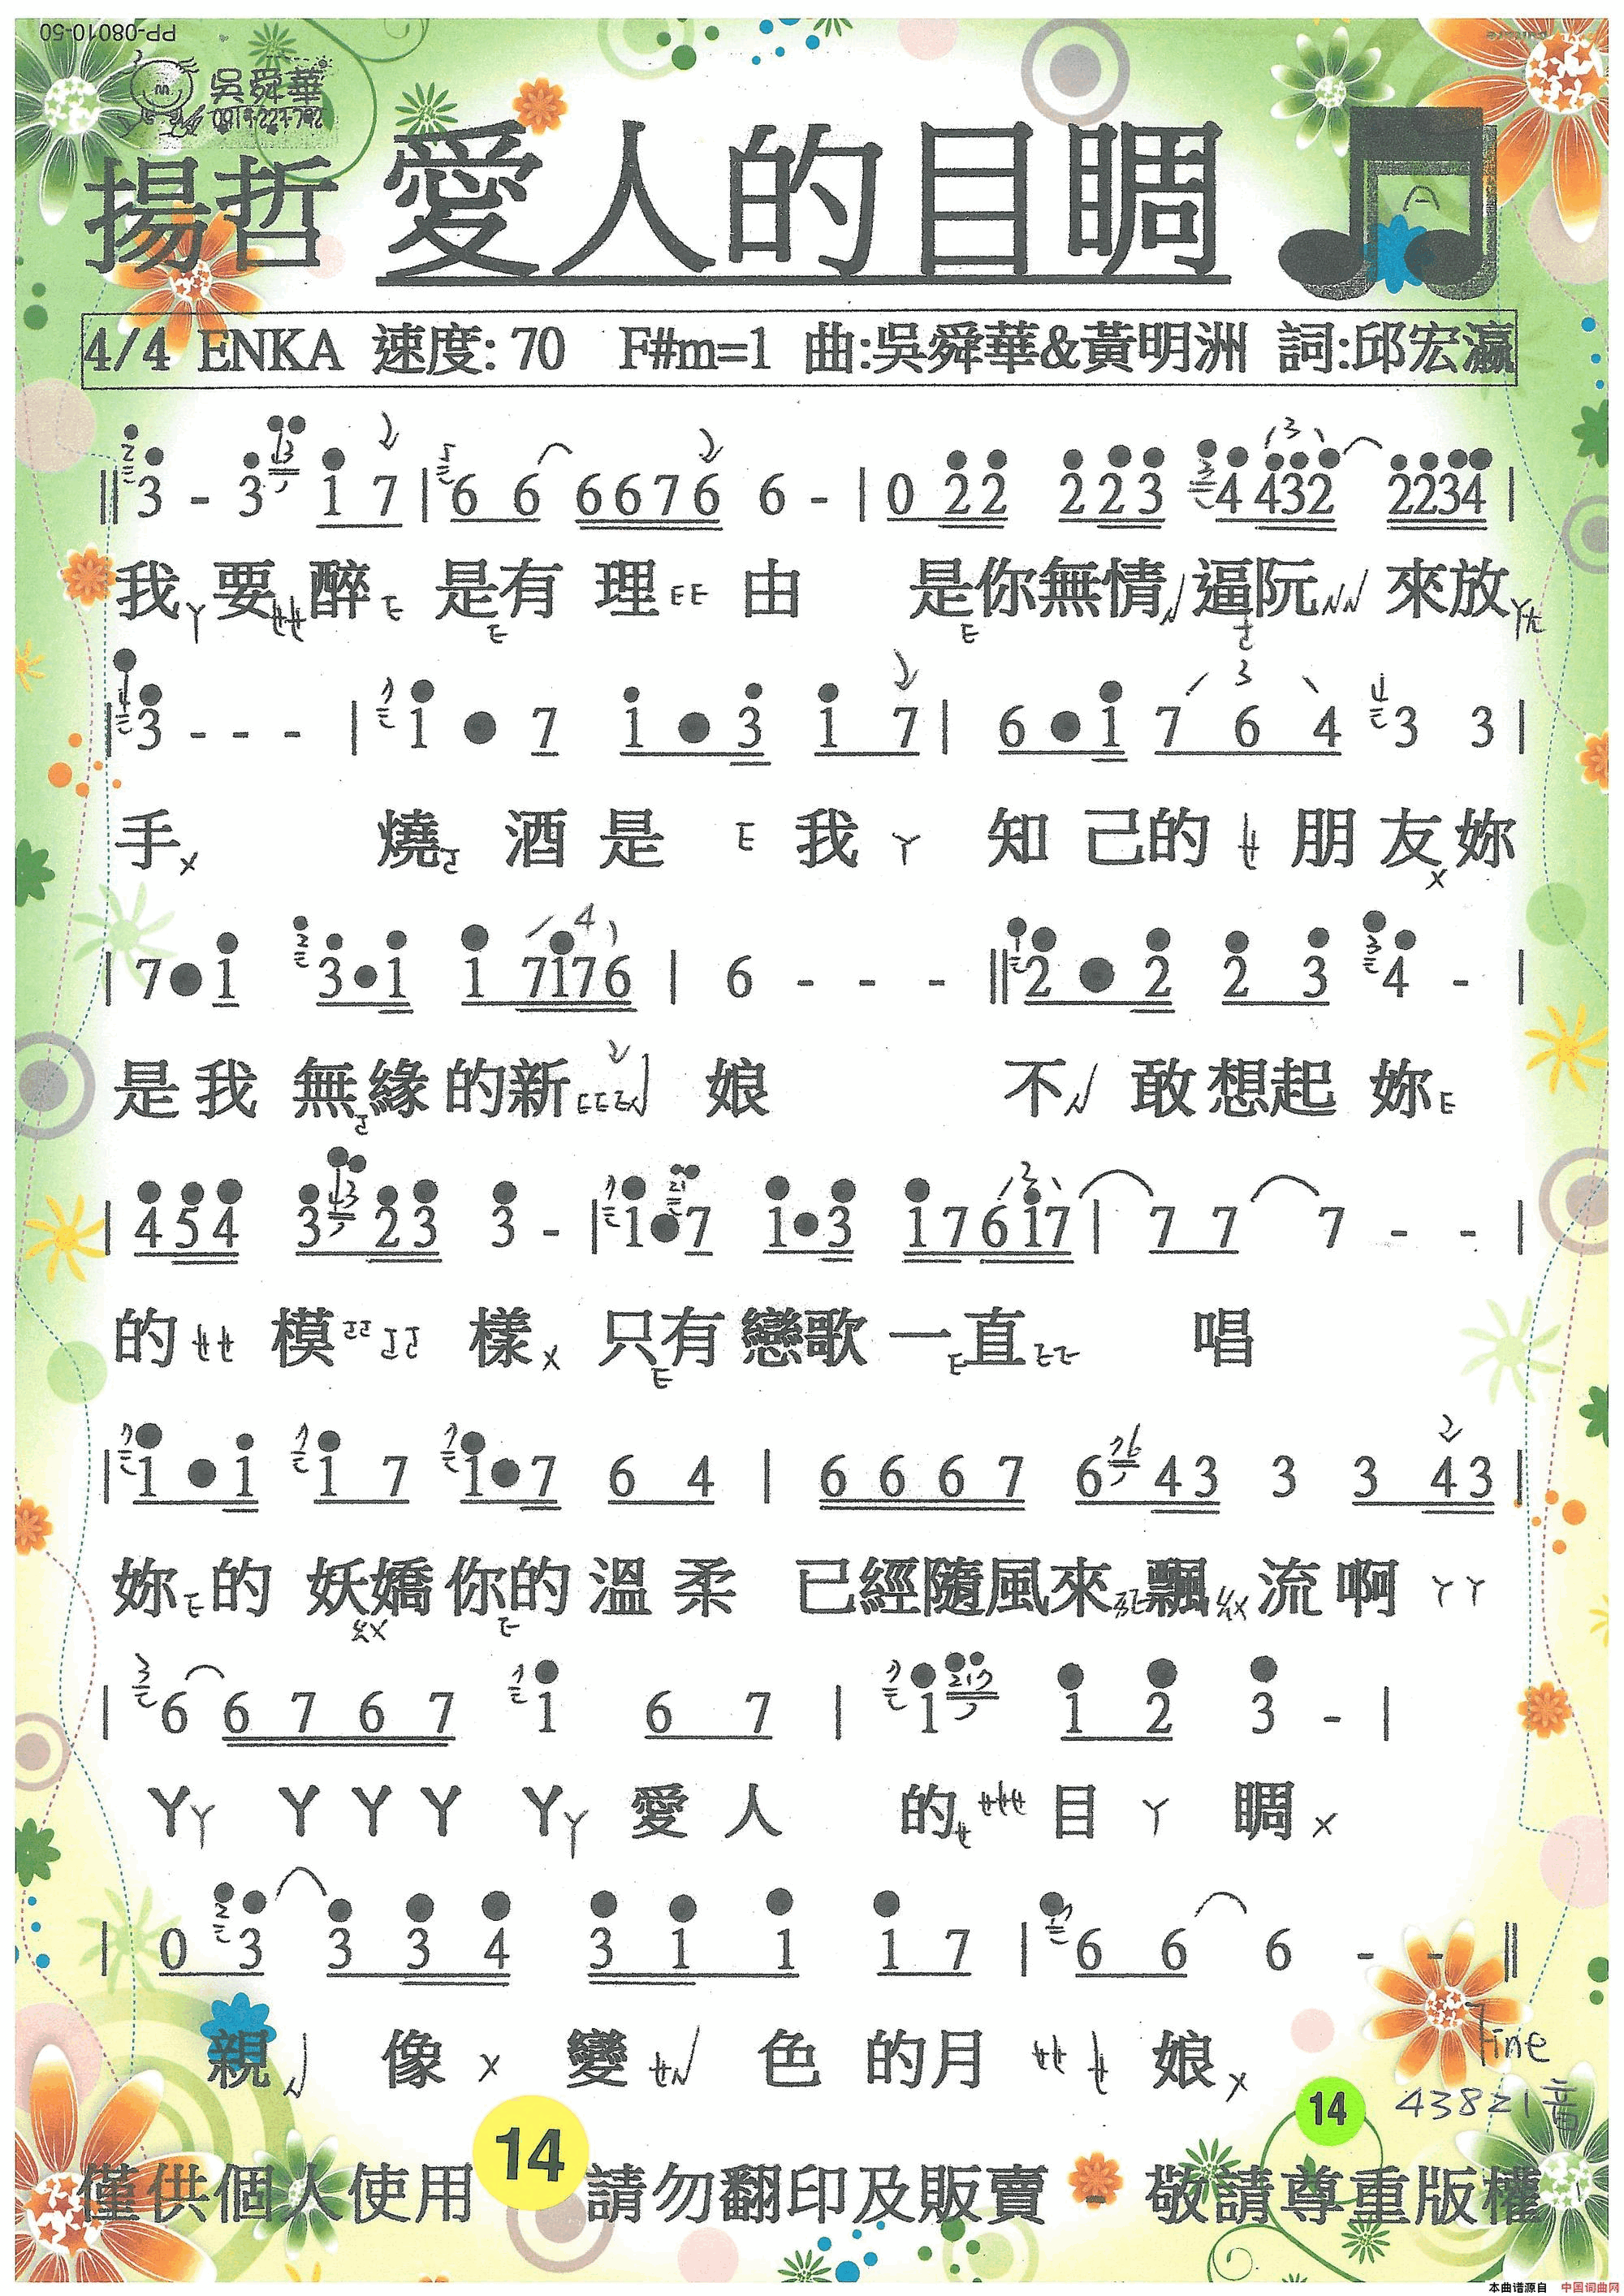 PP-08010-50
吳舜華
揚哲 愛人的目睭
4/4 ENKA 速度: 70 F#m=1 曲:吳舜華&黃明洲 詞:邱宏瀛
‖3 - 3 1 7 | 6 6 6676 6 - | 0 22 223 4432 2234 |
我ㄚ要ㄝㄝ醉ㄜ 是有理ㄜㄜ由 是你無情ㄣ逼阮ㄣㄣ來放
|3 - - - | 1 • 7 1 • 3 1 7 | 6 • 1 7 6 4 3 3 |
手ㄨ 燒 酒 是 ㄜ 我 ㄚ 知 己的 ㄝ 朋 友ㄨ妳
| 7•1 3•1 1 7176 | 6 - - - ‖2 • 2 2 3 4 - |
是我 無緣的新 娘 不ㄣ 敢想起 妳ㄜ
| 454 3 23 3 - | 1•7 1•3 17617 | 7 7 7 - - |
的ㄝㄝ 模 樣ㄨ 只有戀歌一直 唱
|1 • 1 1 7 1•7 6 4 | 6 6 6 7 6 43 3 3 43|
妳ㄜ的 妖嬌你的溫柔 已經隨風來飄流啊 ㄚㄚ
| 6 6 7 6 7 1 6 7 | 1 1 2 3 - |
ㄚㄚ ㄚㄚㄚ ㄚㄚ 愛人 的 目 ㄚ 睭 ㄨ
| 0 3 3 3 4 3 1 1 1 7 | 6 6 6 - - ‖
親ㄣ 像 ㄨ 變ㄝㄣ 色 的月 ㄝㄝㄝ 娘ㄨ
Fine
43821音
14
14
僅供個人使用 請勿翻印及販賣 - 敬請尊重版權
本曲谱源自 中国词曲网